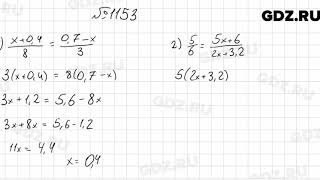 №1153
GDZ.RU
) x+0,4/8 = 0,7-x/3
3(x+0,4) = 8(0,7-x)
3x+1,2 = 5,6-8x
3x+8x = 5,6-1,2
11x = 4,4
x = 0,4
2) 5/6 = 5x+6/2x+3,2
5(2x+3,2)